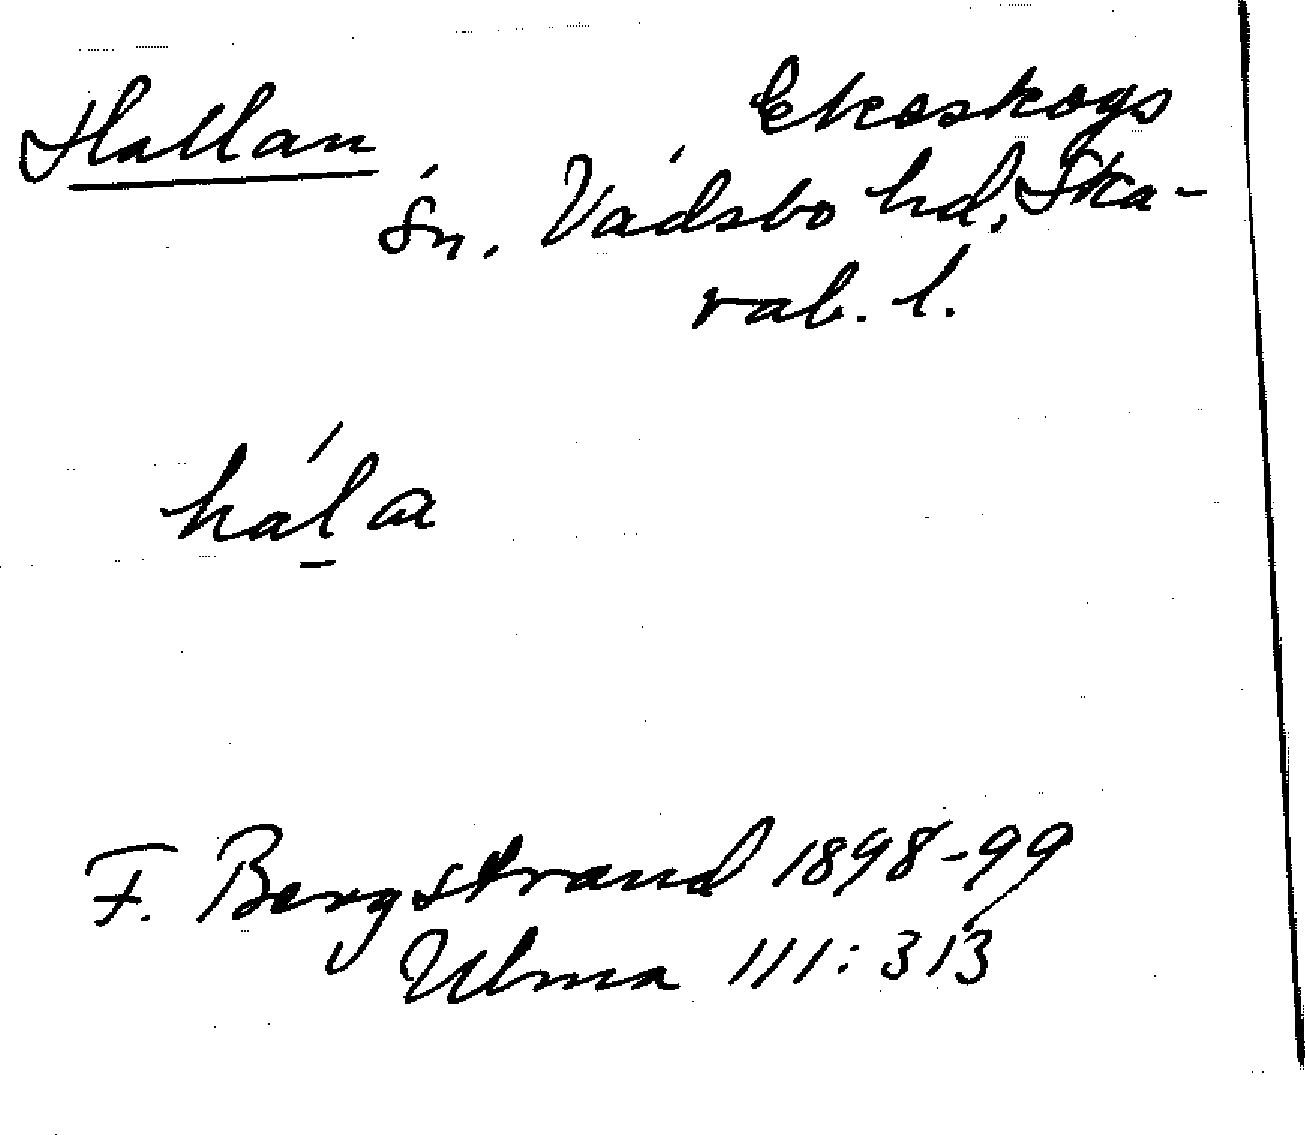 Hallan
Ekeskogs
sn. Vadsbo hd, Ska-
rab. l.
hál̲a
F. Bergstrand 1898-99
Ulma 111:313